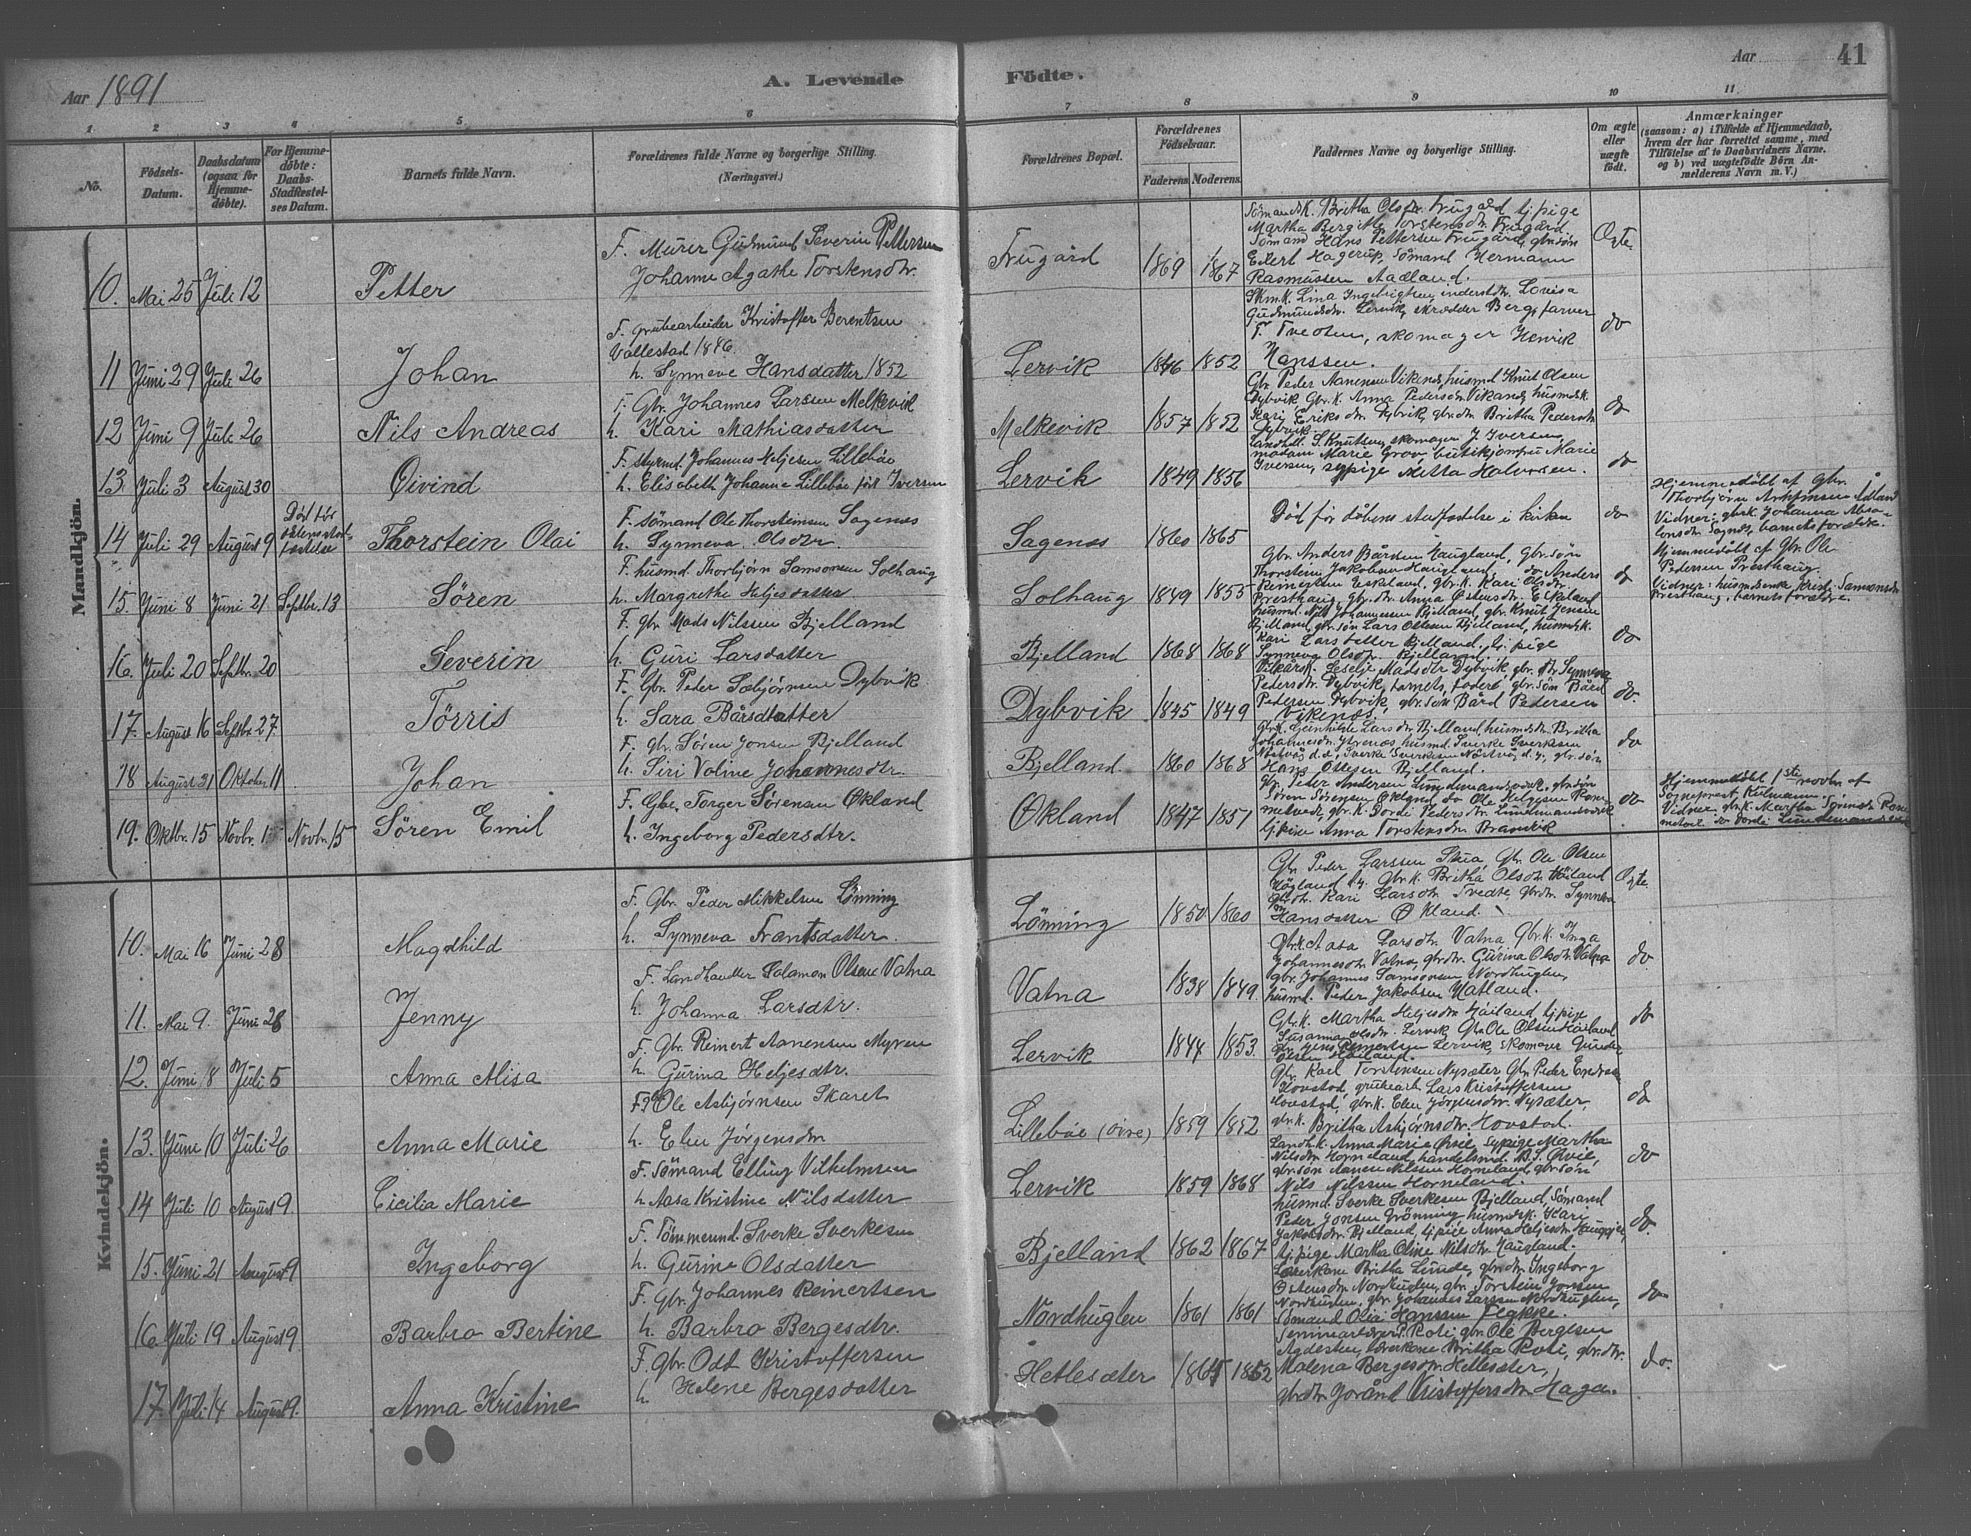 Aar 1891
A. Levende
Födte.
Aar
41
1 2 3 4 5 6 7 8 9 10 11
No.
Födsels-Datum.
Daabsdatum (ogsaa for Hjemme-döbte).
For Hjemme-döbte: Daabs-Stadfæstel-ses Datum.
Barnets fulde Navn.
Forældrenes fulde Navne og borgerlige Stilling.
(Næringsvei.)
Forældrenes Bopæl.
Forældrenes Födselsaar.
Faderens. Moderens.
Faddernes Navne og borgerlige Stilling.
Om ægte eller uægte födt.
Anmærkninger
(saasom: a) i Tilfælde af Hjemmedaab, hvem der har forrettet samme, med Tilföielse af to Daabsvidners Navne, og b) ved uægtefödte Börn An-melderens Navn m.V.)
Mandkjön.
10. Mai 25 Juli 12 Petter
F. Murer Gudmund Severin Pettersen
Johanne Agathe Torstensdtr.
Frugård 1869 1867
Martha Bergitte Torstensdtr. Frugård,
Sömand Hans Pettersen Frugård, gbr.sön
Eilert Hagerup, Sömand Hermann
Rasmussen Aadland.
Ægte
11 Juni 29 Juli 26 Johan
F. grubearbeider Kristoffer Berentsen
Vallestad 1846.
h. Synneve Hansdatter 1852
Lervik 1846 1852
Gudmundsdtr. Lervik, skrædder Berg, farver
T. Tveoten, skomager Henrik
Hanssen.
do
12 Juni 9 Juli 26 Nils Andreas
F. Gbr. Johannes Larsen Melkevik
h. Kari Mathiasdatter
Melkevik 1857 1852
Gbr. Peder Aanensen Vikanes, husmd Knut Olsen
Dybvik Gbr.k. Anna Pedersdtr. Vikanes, husmdsk.
Kari Eriksdtr. Dybvik, gbr.dtr. Britha Pedersdtr.
Dybvik
do
13. Juli 3 August 30 Öivind
F. styrmd. Johannes Heljesen Lilleböe
h. Elisabeth Johanne Lilleböe föd Iversen
Lervik 1849 1856
Landhdl. S. Knutsen, skomager J. Iversen
madam Marie Grov, butikjomfru Marie
Iversen, sypige Metta Halvorsen.
do
14 Juli 29 August 9 Död för dåbens stad-fæstelse Thorstein Olai
F. Sömand Ole Thorsteinsen Sagenæs
h. Synneva Olsdtr.
Sagenæs 1860 1865
Död för dåbens stadfæstelse i kirken
do
Hjemmedöbt af gbr.
Thorbjörn Arnfinsen Ådland
Vidner: gbrk. Johanna Absa-
lonsdtr. Sagnæs, barnets forældre.
15. Juni 8 Juni 21 Septbr. 13 Sören
F. husmd Thorbjörn Samsonsen Solhaug
h. Margrethe Heljesdatter
Solhaug 1849 1855
Gbr. Anders Bårdsen Haugland, gbr.sön
Thorstein Jakobsen Haugland, do Anders
Reinertsen Eskeland, gbr.k. Kari Olsdtr.
Presthaug, gbr.dtr. Anna Östensdtr. Eskeland
do
Hjemmedöbt af Gbr. Ole
Pedersen Presthaug.
Vidner: husmdsenke Kristi Samsonsdtr.
Presthaug, barnets forældre.
16. Juli 20 Septbr. 20 Severin
F. gbr. Mads Nilssen Bjelland
h. Guri Larsdatter
Bjelland 1868 1868
husmd. Nils Johannessen Bjelland, gbr. Knut Jensen
Bjelland, gbr.sön Lars Ottesen Bjelland, husmdsk.
Kari Larsdatter Bjelland, tj. pige
Synneva Olsdtr. Bjelland.
do
17. August 16 Septbr. 27. Törris
F. Gbr. Peder Sæbjörnsen Dybvik
h. Sara Bårsdtatter
Dybvik 1845 1849
Vikårsk. Leselje Madsdtr Dybvik, gbr. dtr. Synneva
Pedersdtr. Dybvik, barnets fader, gbr.sön Bård
Pedersen Dybvik, gbr.sön Bård Pedersen
Vikenæs.
do.
18 August 21 Oktober 11 Johan
F. gbr. Sören Jonsen Bjelland
h. Siri Valine Johannesdtr.
Bjelland 1860 1868
Gbr.k. Gunhilde Larsdtr. Bjelland, husmdsdtr. Britha
Johannesdtr. husmd. Sverke Sverksen
Hans Ottesen Bjelland.
do
19. Oktbr. 15 Novbr. 1 Novbr. 15 Sören Emil
F. Gbr. Torger Sörensen Ökland
h. Ingeborg Pedersdtr.
Økland 1847 1851
Gbr. Peder Andersen Lundemandsværk, gbr.sön
Sören Sörensen Ökland, do Ole Heljesen Rom-
metveit, gbr.k. Dorde Pedersdtr. Lundemandsværk
tj.pige Anna Torstensdtr. Brandvik
do
Hjemmedöbt 1ste novbr. af
Sogneprest Kulmann.
Vidner: gbr.k. Martha Sörensdtr. Rom-
metveit do Dordi Lundemandsværk
Kvindekjön.
10. Mai 16 Juni 28 Magnhild
F. Gbr. Peder Mikkelsen Lönning
h. Synneva Frantsdatter.
Lönning 1850 1860
Gbr. Peder Larssen Skua, Gbr. Ole Olsen
Högland, gbr.k. Britha Olsdtr. Håiland
gbrdtr. Kari Larsdtr. Tvedte, gbr.dtr. Synneva
Hansdatter Økland.
Ægte.
11. Mai 9. Juni 28 Jenny
F. Landhandler Salamon Olsen Vatna
h. Johanna Larsdtr.
Vatna 1838 1849.
Gbr.k. Aasa Larsdtr. Vatna, Gbr.k. Inga
Johannesdtr. Vatna, gbr.dtr. Gurina Olsdtr. Vatna
gbr. Johannes Samsonsen Nordhuglen,
husmd. Peder Jakobsen Hatland.
do.
12. Juni 8 Juli 5 Anna Alisa
F. Gbr. Reinert Aanensen Myren
h. Gurina Heljesdtr.
Lervik 1844 1853.
Gbr.k. Martha Heljesdtr. Håiland, tj.pige
Susanna Olsdtr. Lervik, Gbr. Ole Olsen Håiland
Lervik, skomager Gunder
Olsen Håiland.
do
13. Juni 10 Juli 26 Anna Marie
F. gbr. Ole Asbjörnsen Skaret
h. Elen Jörgensdtr
Lillebøe (övre) 1859 1852
Gbr. Kael Torstensen Nysæter Gbr. Peder Endresen
Hovstad, grubearb. Lars Kristoffersen
Hovstad, gbr.k. Elen Jörgensdtr. Nysæter,
gbr.k. Britha Asbjörnsdtr. Hovstad.
do
14 Juli 10 August 9. Cicilia Marie
F. Sömand Elling Vilhelmsen
h. Aasa Kristine Nilsdatter
Lervik 1859 1868
Landh.k. Anna Marie Øvie, sypige Martha
Nilsdtr. Horneland, handelsmd. B. S. Øvie,
gbr.sön Aanen Nilssen Horneland, gbr.sön
Nils Nilssen Horneland.
do
15. Juni 21 August 9 Ingeborg
F. Tömmermd. Sverke Sverkesen
h. Gurine Olsdatter
Bjelland 1862 1867
husmd. Sverke Sverkesen Bjelland, Sömand
Peder Jonsen Grönning husmdsk. Kari
Jakobsdtr. Bjelland, tj.pige Anna Heljesdtr.
tj.pige Martha Oline Nilsdtr. Haugland.
do.
16. Juli 19 August 9 Barbro Bertine
F. Gbr. Johannes Reinertsen
h. Barbro Bergesdtr.
Nordhuglen 1861 1861
Lærerkone Britha Lunde, gbr.dtr. Ingeborg
Östensdtr. Nordhuglen, gbr. Torstein Jonsen
Nordhuglen, gbr. Johannes Larssen Nordhuglen,
Sömand Olai Hanssen Flakke.
do
17. Juli 14 August 9. Anna Kristine
F. gbr. Odt Kristoffersen
h. Helene Bergesdatter
Hetlesæter 1862
Seminarlærer P. Roti, gbr. Ole Bergesen
Agdesten, lærerkone Britha Roti, gbr.dtr.
Malena Bergesdtr. Hetlesæter,
gbrdtr. Joránd Kristoffersdtr. Haga.
do.